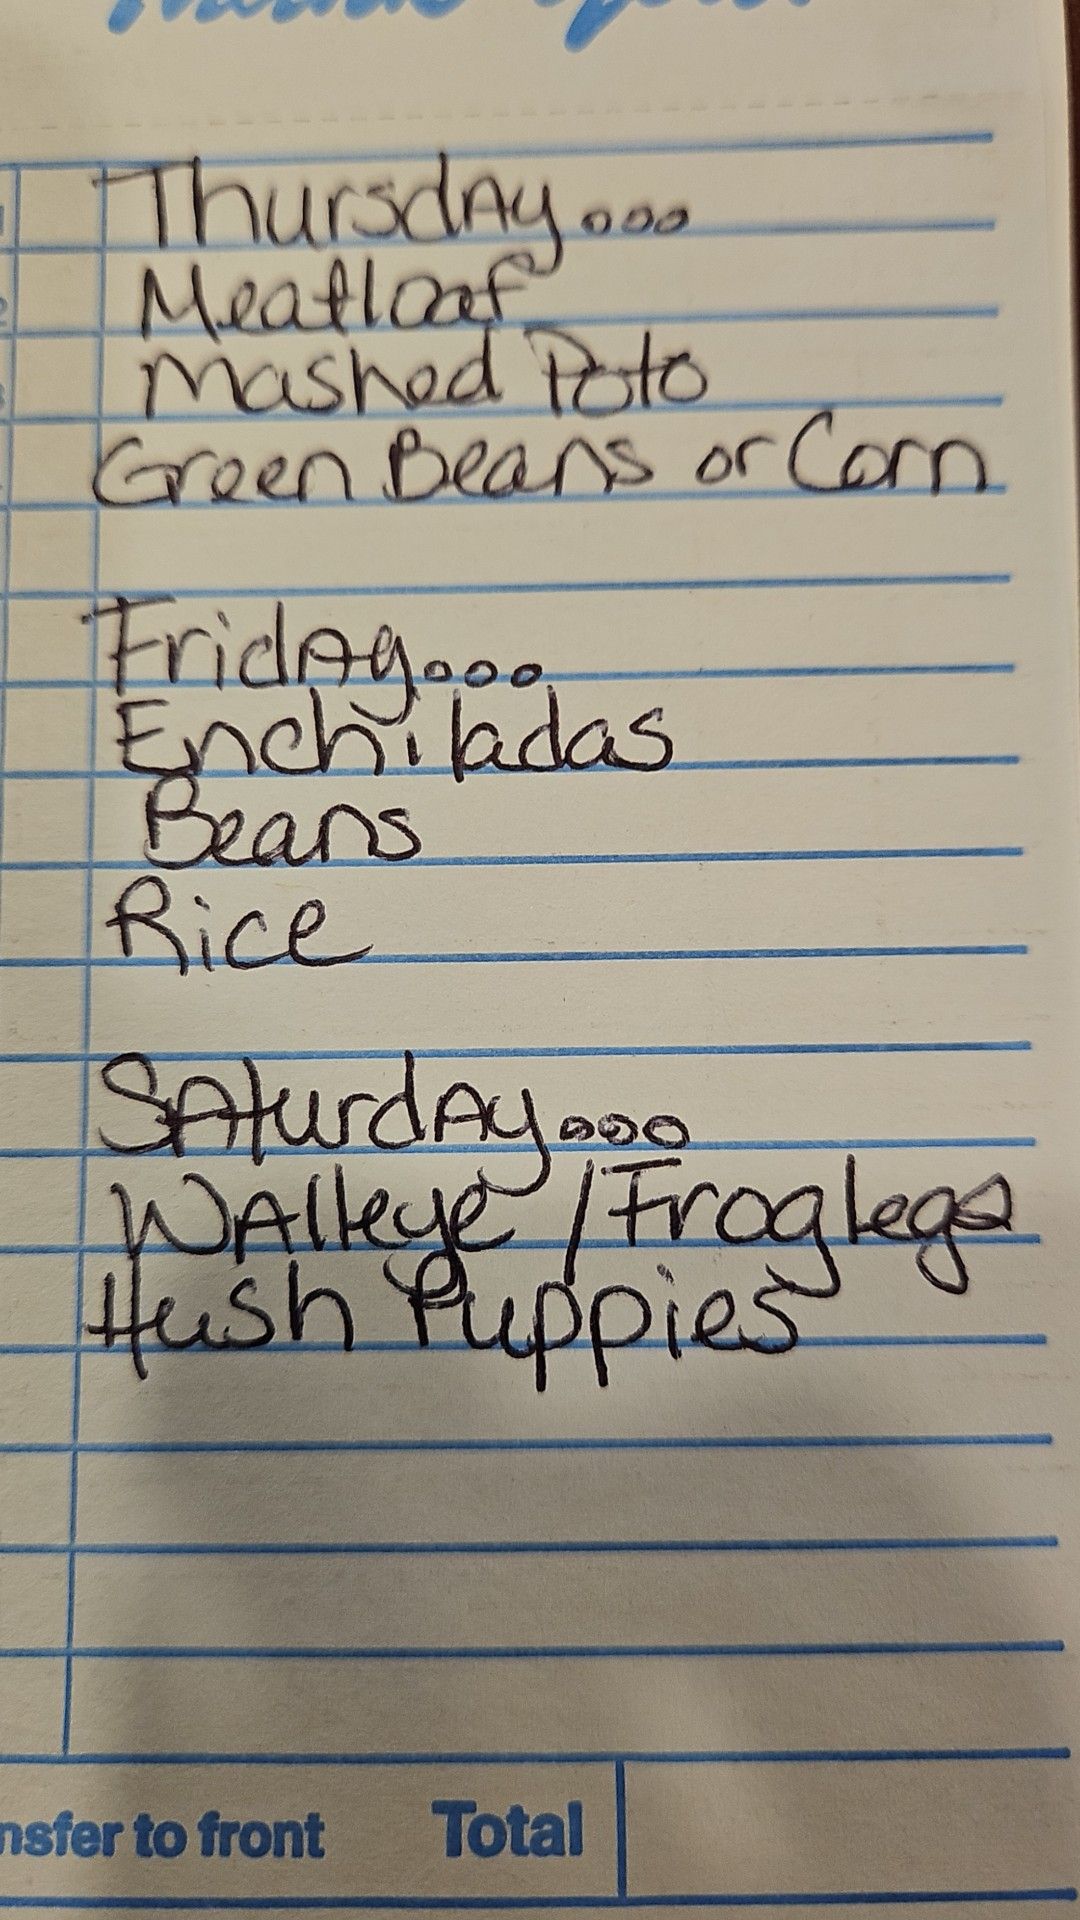 Thursday...
Meatloaf
Mashed Poto
Green Beans or Corn
Friday...
Enchiladas
Beans
Rice
Saturday...
Walleye / Frog legs
Hush Puppies
nsfer to front Total